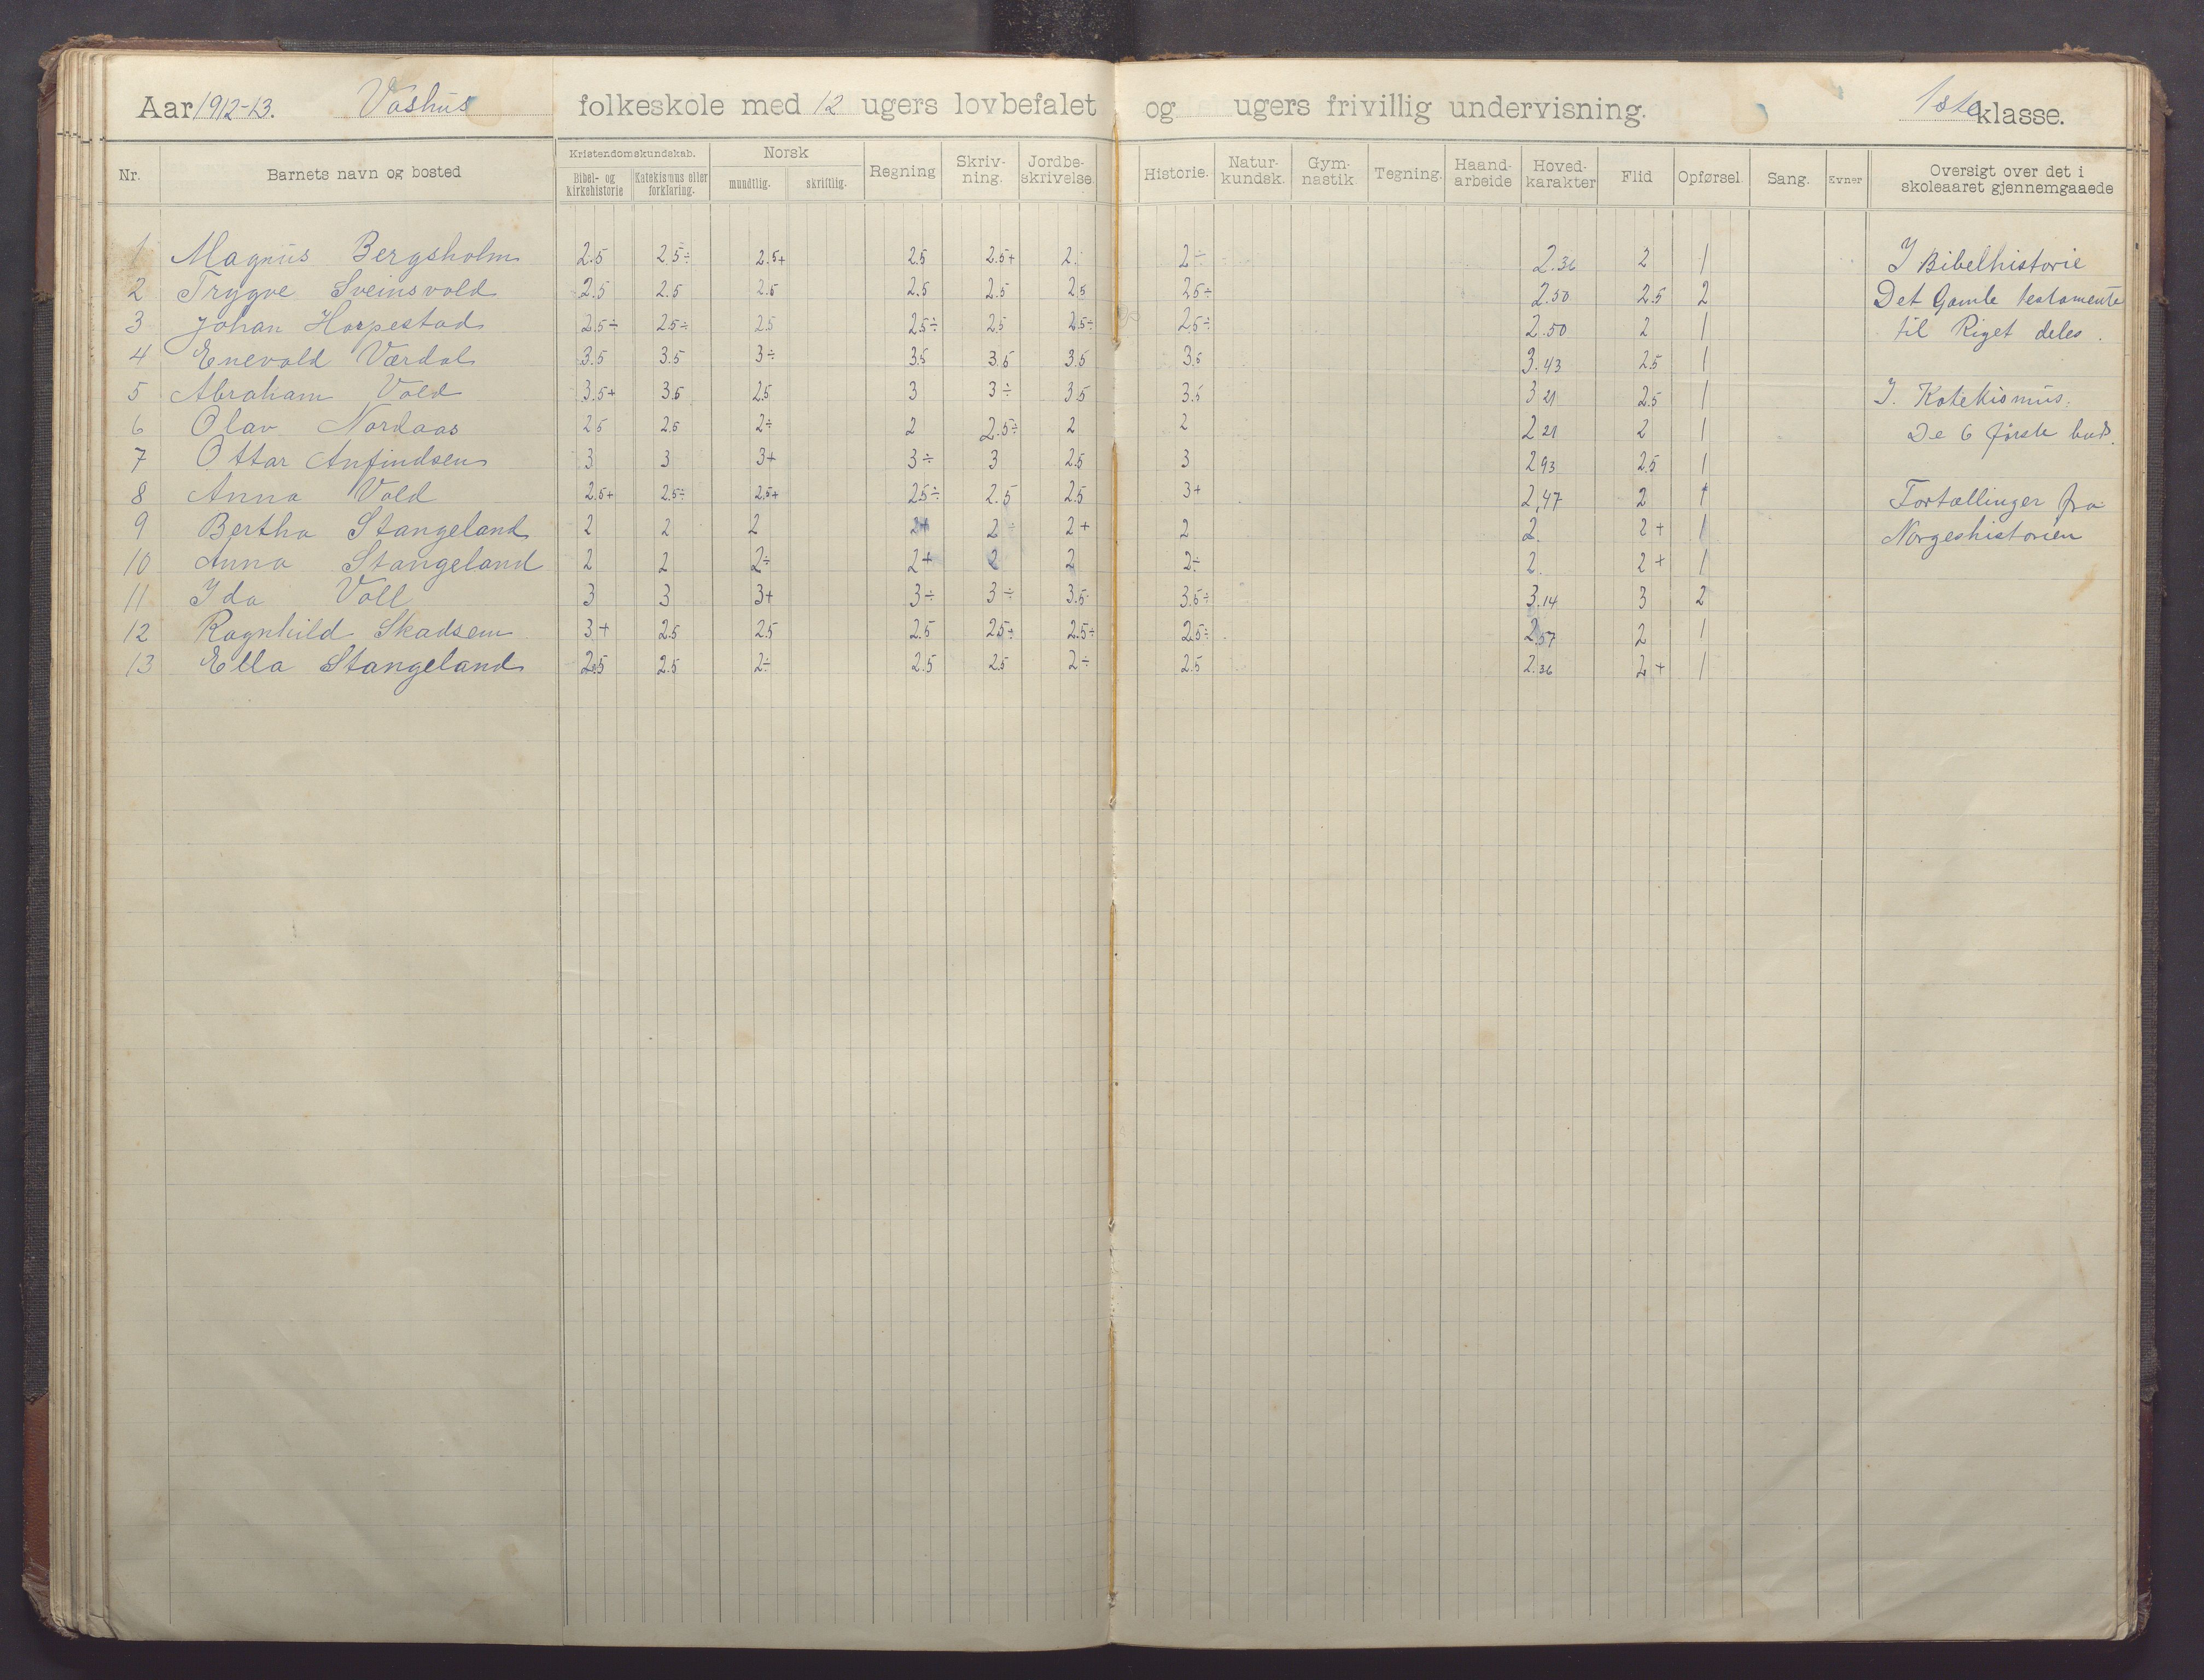 Aar 1912-13. Vashus folkeskole med 12 ugers lovbefalet og ugers frivillig undervisning. 1ste klasse.
Nr. Barnets navn og bosted Kristendomskundskab. Bibel- og kirkehistorie Katekismus eller forklaring. Norsk mundtlig. skriftlig. Regning Skriv-ning. Jordbe-skrivelse. Historie. Natur-kundsk. Gym-nastik Tegning. Haand-arbeide Hoved-karakter Flid Opførsel. Sang. Evner Oversigt over det i skoleaaret gjennemgaaede
1 Magnus Bergsholm 2.5 2.5÷ 2.5+ 2.5 2.5+ 2. 2÷ 2.36 2 1 I Bibelhistorie
2 Trygve Sveinsvold 2.5 2.5 2.5 2.5 2.5 2.5 2.5÷ 2.50 2.5 2 Det Gamle testamente
3 Johan Harpestad 2.5÷ 2.5÷ 2.5 2.5÷ 2.5 2.5÷ 2.5÷ 2.50 2 1 til Riget deles.
4 Enevald Værdal 3.5 3.5 3÷ 3.5 3.5 3.5 3.5 3.43 2.5 1
5 Abraham Vold 3.5+ 3.5 2.5 3 3÷ 3.5 3.5 3 21 2.5 1 I. Katekismus:
6 Olav Nordaas 2.5 2.5 2÷ 2 2.5÷ 2 2 2 21 2 1 De 6 første bud.
7 Ottar Anfindsen 3 3 3+ 3÷ 3 2.5 3 2.93 2.5 1
8 Anna Vold 2.5+ 2.5÷ 2.5+ 2.5÷ 2.5 2.5 3+ 2,47 2 1 Fortællinger fra
9 Bertha Stangeland 2 2 2 2+ 2÷ 2+ 2 2. 2+ 1 Norgeshistorien
10 Anna Stangeland 2 2 2÷ 2+ 2 2 2÷ 2. 2+ 1
11 Ida Voll 3 3 3+ 3÷ 3÷ 3.5 3.5÷ 3.14 3 2
12 Ragnhild Skadsem 3+ 2.5 2.5 2.5 2.5÷ 2.5÷ 2.5÷ 2.57 2 1
13 Ella Stangeland 2.5 2.5 2÷ 2.5 2.5 2÷ 2.5 2.36 2+ 1